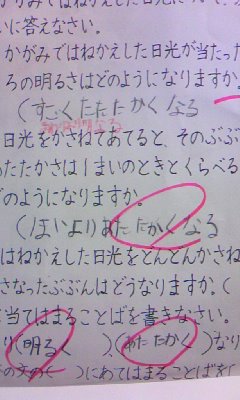 かがみではねかえした日光について
いに答えなさい。
かがみではねかえした日光が当たった
ろの明るさはどのようになりますか。
(すごくたたたかくなる
明るくなる
日光をかさねてあてると、そのぶぶ
たたかさは1まいのときとくらべる
どのようになりますか。
(ばいよりあたたかくなる
はねかえした日光をどんどんかさね
さなったぶぶんはどうなりますか。(
当てはまることばを書きなさい。
り(明るく)、(あたたかく)なり
の文の( )にあてはまることばを(